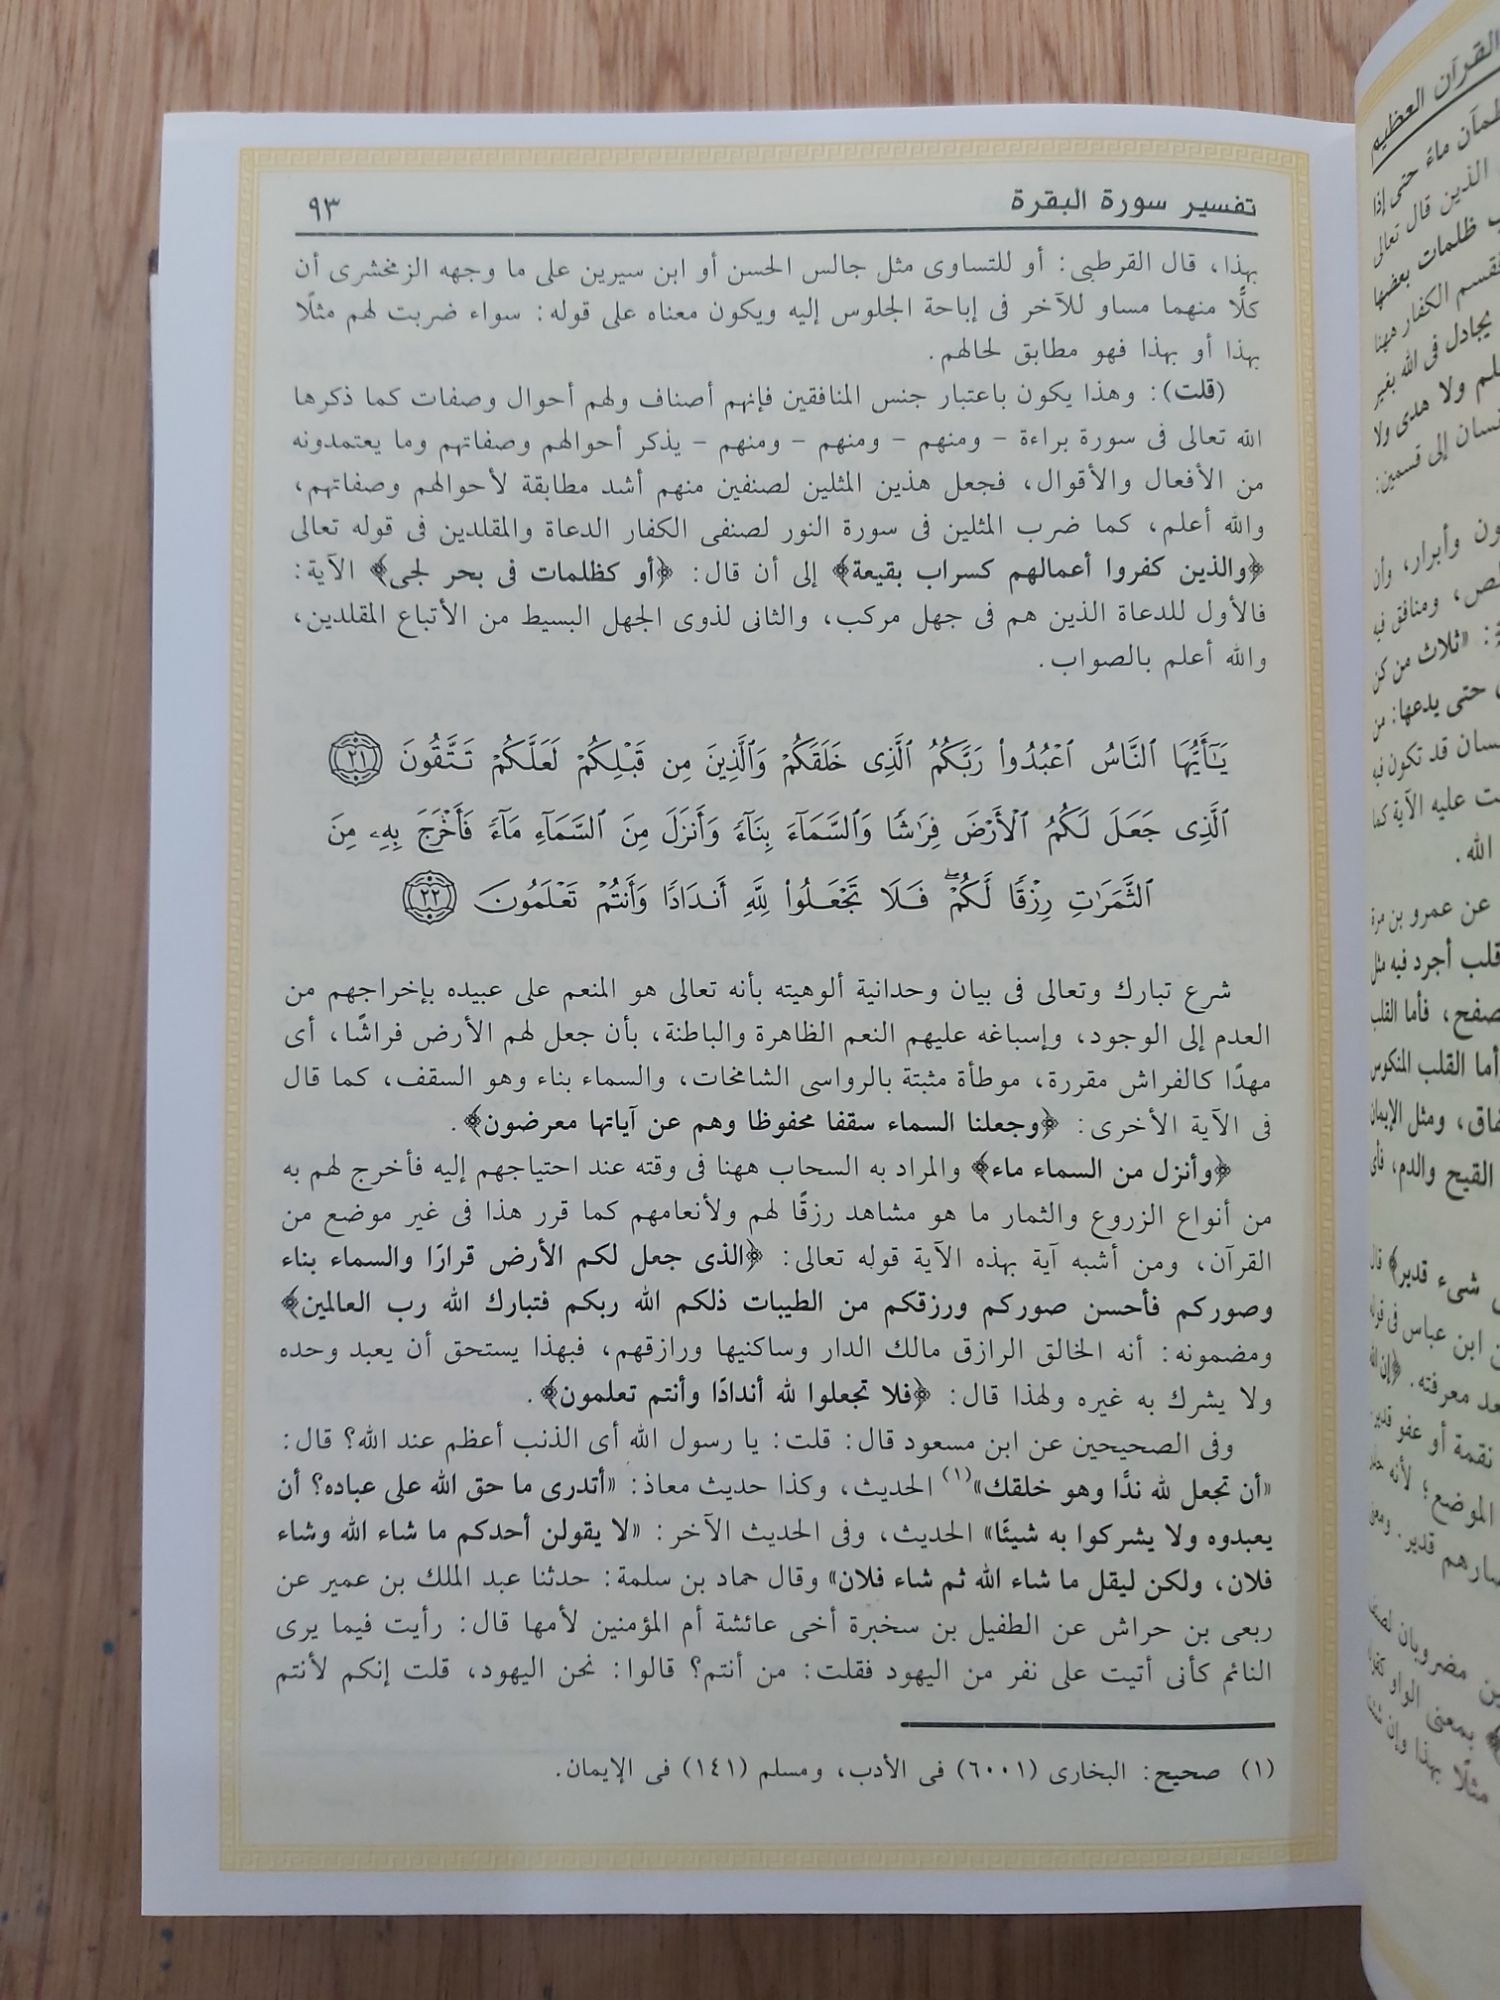 تفسير سورة البقرة ٩٣
بهذا، قال القرطبى: أو للتساوى مثل جالس الحسن أو ابن سيرين على ما وجهه الزمخشرى أن
كلًّا منهما مساو للآخر فى إباحة الجلوس إليه ويكون معناه على قوله: سواء ضربت لهم مثلًا
بهذا أو بهذا فهو مطابق لحالهم.
(قلت): وهذا يكون باعتبار جنس المنافقين فإنهم أصناف ولهم أحوال وصفات كما ذكرها
الله تعالى فى سورة براءة – ومنهم – ومنهم – ومنهم – يذكر أحوالهم وصفاتهم وما يعتمدونه
من الأفعال والأقوال، فجعل هذين المثلين لصنفين منهم أشد مطابقة لأحوالهم وصفاتهم،
والله أعلم، كما ضرب المثلين فى سورة النور لصنفى الكفار الدعاة والمقلدين فى قوله تعالى
﴿والذين كفروا أعمالهم كسراب بقيعة﴾ إلى أن قال: ﴿أو كظلمات فى بحر لجى﴾ الآية:
فالأول للدعاة الذين هم فى جهل مركب، والثانى لذوى الجهل البسيط من الأتباع المقلدين،
والله أعلم بالصواب.
يَـٰٓأَيُّهَا ٱلنَّاسُ ٱعْبُدُوا۟ رَبَّكُمُ ٱلَّذِى خَلَقَكُمْ وَٱلَّذِينَ مِن قَبْلِكُمْ لَعَلَّكُمْ تَتَّقُونَ ٢١
ٱلَّذِى جَعَلَ لَكُمُ ٱلْأَرْضَ فِرَٰشًا وَٱلسَّمَآءَ بِنَآءً وَأَنزَلَ مِنَ ٱلسَّمَآءِ مَآءً فَأَخْرَجَ بِهِۦ مِنَ
ٱلثَّمَرَٰتِ رِزْقًا لَّكُمْ ۖ فَلَا تَجْعَلُوا۟ لِلَّهِ أَندَادًا وَأَنتُمْ تَعْلَمُونَ ٢٢
شرع تبارك وتعالى فى بيان وحدانية ألوهيته بأنه تعالى هو المنعم على عبيده بإخراجهم من
العدم إلى الوجود، وإسباغه عليهم النعم الظاهرة والباطنة، بأن جعل لهم الأرض فراشًا، أى
مهدًا كالفراش مقررة، موطأة مثبتة بالرواسى الشامخات، والسماء بناء وهو السقف، كما قال
فى الآية الأخرى: ﴿وجعلنا السماء سقفا محفوظا وهم عن آياتها معرضون﴾.
﴿وأنزل من السماء ماء﴾ والمراد به السحاب ههنا فى وقته عند احتياجهم إليه فأخرج لهم به
من أنواع الزروع والثمار ما هو مشاهد رزقًا لهم ولأنعامهم كما قرر هذا فى غير موضع من
القرآن، ومن أشبه آية بهذه الآية قوله تعالى: ﴿الذى جعل لكم الأرض قرارًا والسماء بناء
وصوركم فأحسن صوركم ورزقكم من الطيبات ذلكم الله ربكم فتبارك الله رب العالمين﴾
ومضمونه: أنه الخالق الرازق مالك الدار وساكنيها ورازقهم، فبهذا يستحق أن يعبد وحده
ولا يشرك به غيره ولهذا قال: ﴿فلا تجعلوا لله أندادًا وأنتم تعلمون﴾.
وفى الصحيحين عن ابن مسعود قال: قلت: يا رسول الله أى الذنب أعظم عند الله؟ قال:
«أن تجعل لله ندًّا وهو خلقك»(١) الحديث، وكذا حديث معاذ: «أتدرى ما حق الله على عباده؟ أن
يعبدوه ولا يشركوا به شيئًا» الحديث، وفى الحديث الآخر: «لا يقولن أحدكم ما شاء الله وشاء
فلان، ولكن ليقل ما شاء الله ثم شاء فلان» وقال حماد بن سلمة: حدثنا عبد الملك بن عمير عن
ربعى بن حراش عن الطفيل بن سخبرة أخى عائشة أم المؤمنين لأمها قال: رأيت فيما يرى
النائم كأنى أتيت على نفر من اليهود فقلت: من أنتم؟ قالوا: نحن اليهود، قلت إنكم لأنتم
(١) صحيح: البخارى (٦٠٠١) فى الأدب، ومسلم (١٤١) فى الإيمان.
القرآن العظيم
ماء حتى إذا
الذين قال تعالى
ظلمات بعضها
الكفار ههنا
يجادل فى الله بغير
ولا هدى ولا
إلى قسمين:
وأبرار، وأن
ومنافق فيه
«ثلاث من كن
حتى يدعها: من
قد تكون فيه
عليه الآية كما
الله.
عن عمرو بن مرة
قلب أجرد فيه مثل
فأما القلب
أما القلب المنكوس
ومثل الإيمان
القيح والدم، فأى
شىء قدير﴾ قال
ابن عباس فى
معرفته. ﴿إن
نقمة أو عفو قدير
الموضع؛ لأنه
قدير. ومعنى
مضروبان
بمعنى الواو
بهذا وإن